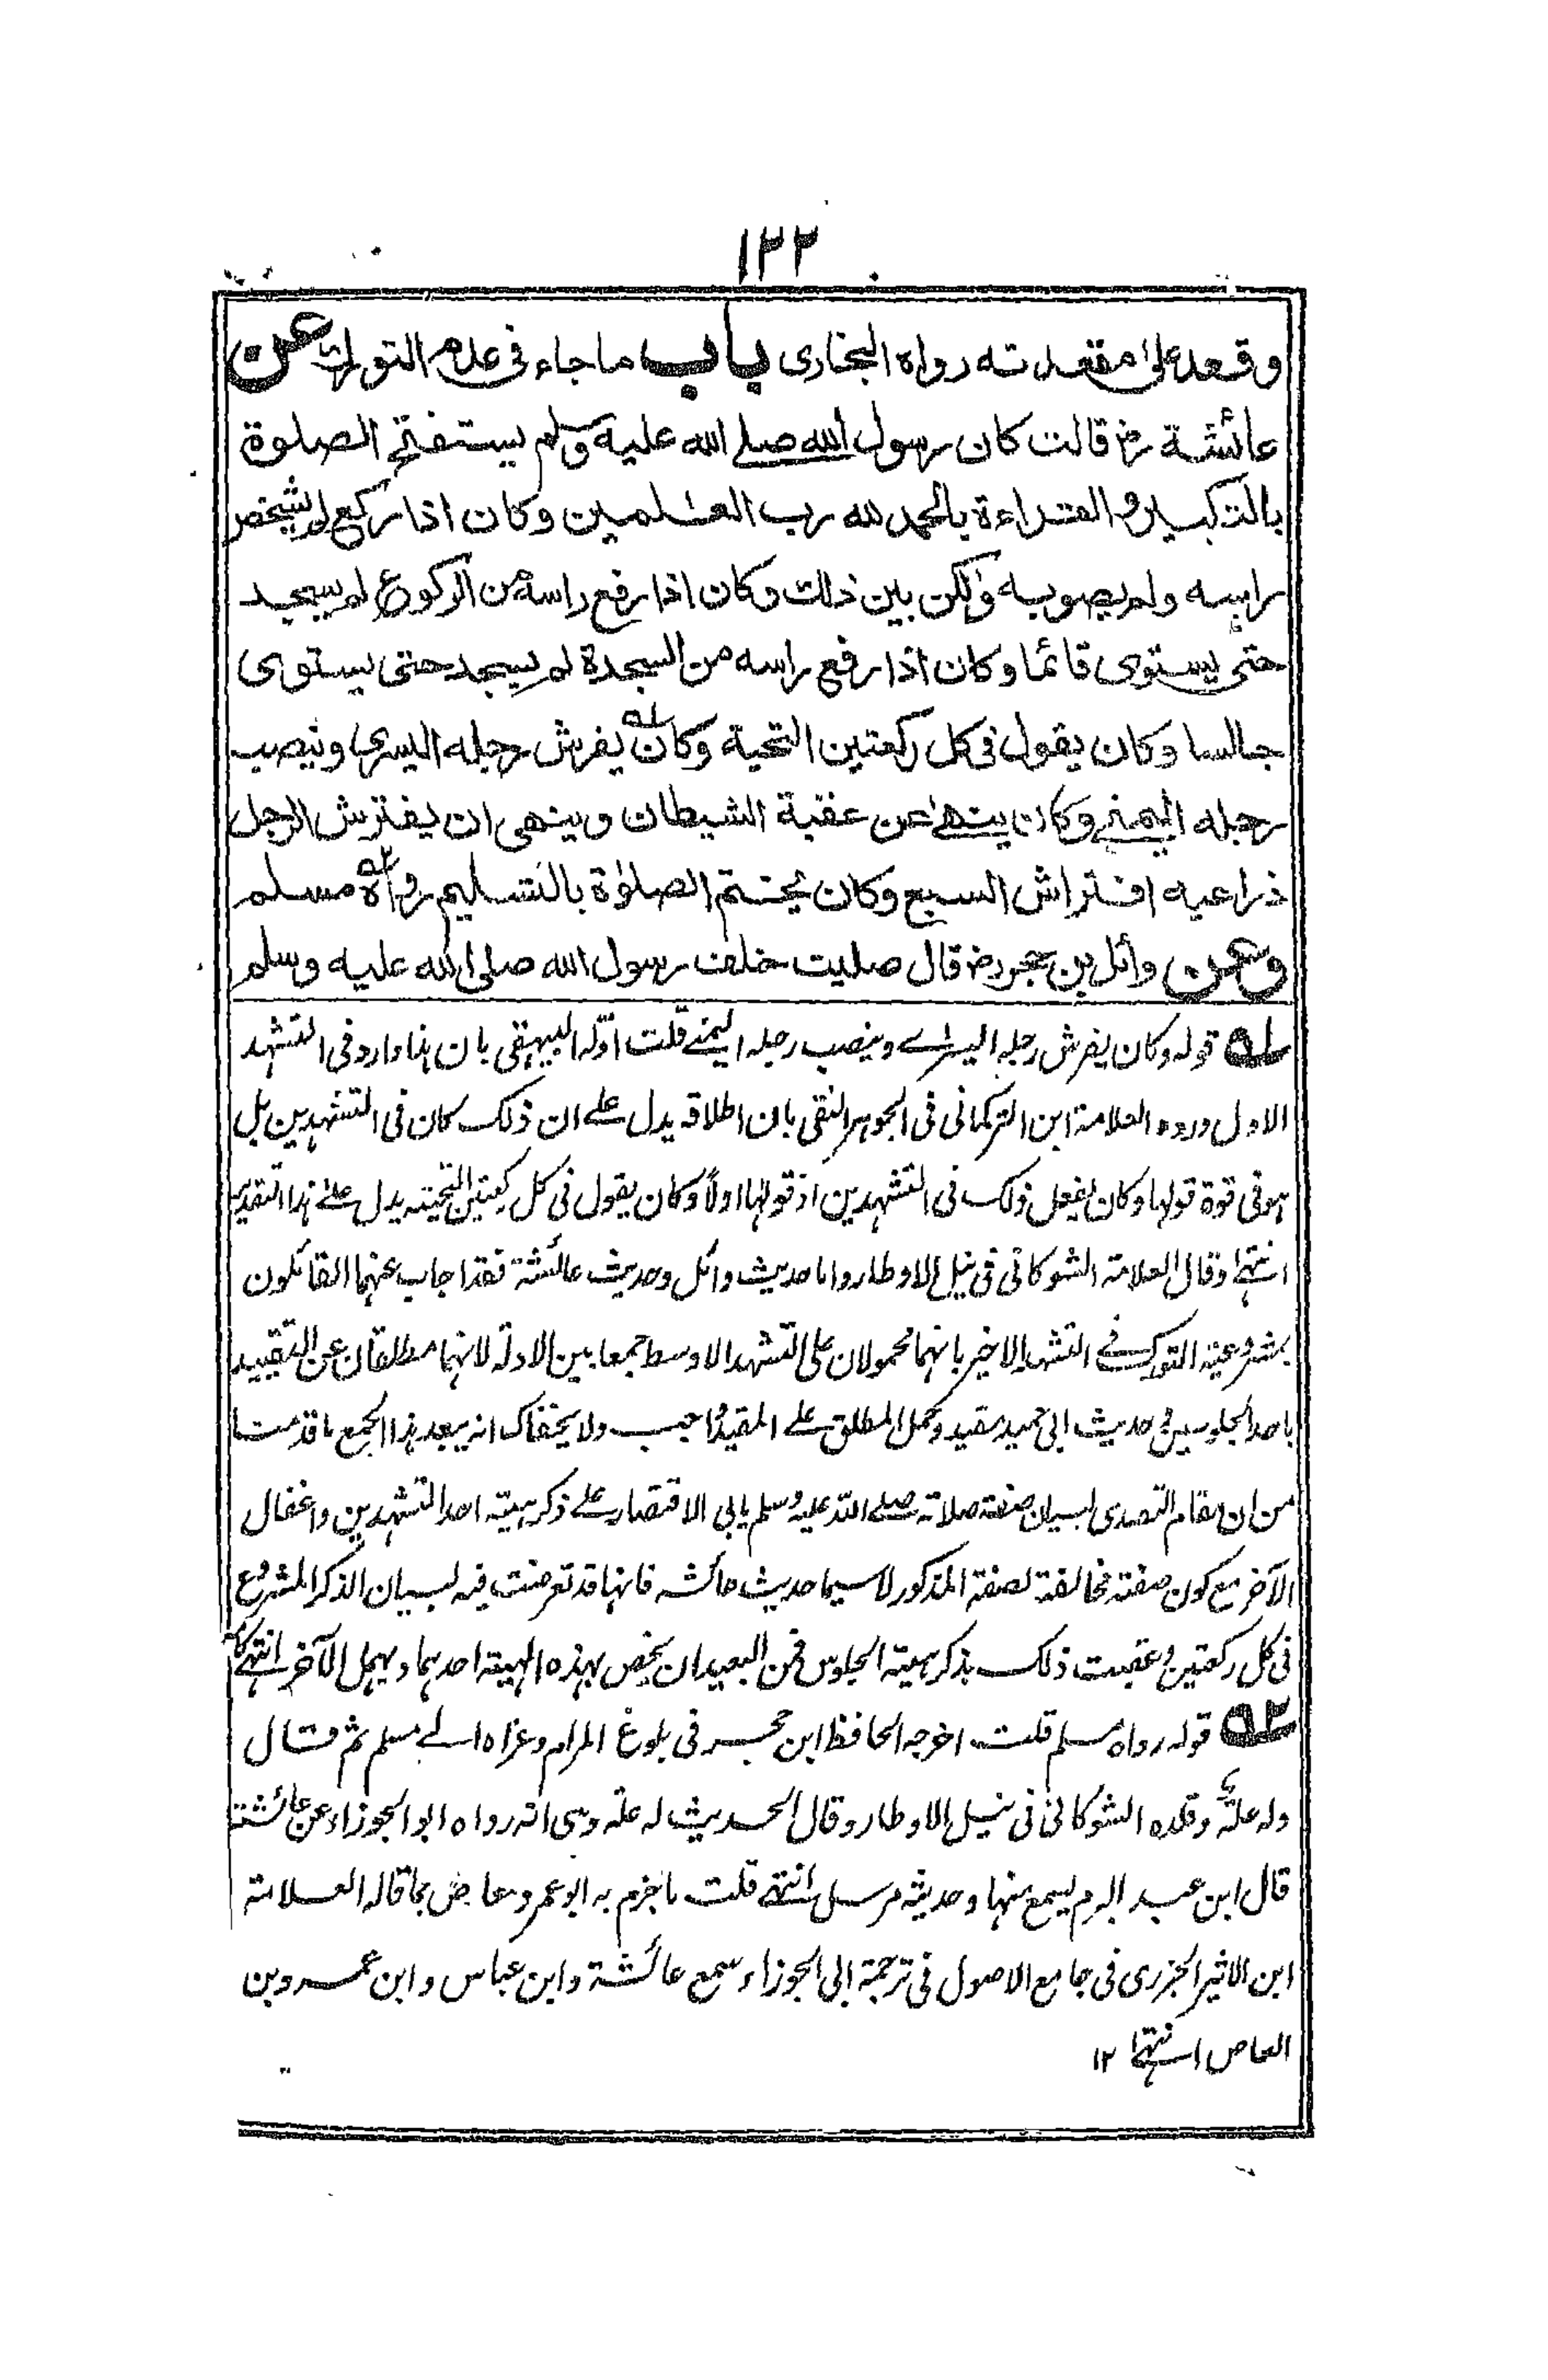 ١٢٢
وقعد على مقعدته رواه البخاری باب ما جاء فی عدم التورك عن
عائشة رض قالت كان رسول الله صلى الله عليه وسلم يستفتح الصلوة
بالتكبير والقراءة بالحمد لله رب العلمين وكان اذا ركع لم يشخص
راسه ولم يصوبه ولكن بين ذلك وكان اذا رفع راسه من الركوع لم يسجد
حتى يستوی قائما وكان اذا رفع راسه من السجدة لم يسجد حتى يستوی
جالسا وكان يقول فی كل ركعتين التحية وكان ١ه يفرش رجله اليسرى وينصب
رجله اليمنى وكان ينهى عن عقبة الشيطان وينهى ان يفترش الرجل
ذراعيه افتراش السبع وكان يختم الصلوٰة بالتسليم رواه ٢ه مسلم
وعن وائل بن حجر رض قال صليت خلف رسول الله صلى الله عليه وسلم
١ه قوله وكان يفرش رجله اليسرے وينصب رجله اليمنے قلت اوّله البيهقی بان هذا وارد فی التشهد
الاول ورده العلامة ابن التركمانی فی الجوهر النقی بان اطلاقه يدل علے ان ذلك كان فی التشهدين بل
هو فی قوة قولها وكان يفعل ذلك فی التشهدين اذ قولها اولاً وكان يقول فی كل ركعتين التحية يدل علے هذا التقدير
انتهے وقال العلامة الشوكانی فی نيل الاوطار واما حديث وائل وحديث عائشة فقد اجاب عنهما القائلون
بمشروعية التورك فے التشهد الاخير بانهما محمولان على التشهد الاوسط جمعا بين الادلة لانهما مطلقان عن التقييد
باحد الجلوسين وحديث ابی حميد مقيد وحمل المطلق علے المقيد واجب ولا يخفاك انه يبعد هذا الجمع ما قدمنا
من ان مقام التصدی لبيان صفة صلاته صلے الله عليه وسلم يابى الاقتصار علے ذكر هيئة احد التشهدين واغفال
الآخر مع كون صفته مخالفة لصفة المذكور لا سيما حديث عائشة فانها قد تعرضت فيه لبيان الذكر المشروع
فی كل ركعتين وعقبت ذلك بذكر هيئة الجلوس فمن البعيد ان يخص بهذه الهيئة احدهما ويهمل الآخر انتهى كلامه
٢ه قوله رواه مسلم قلت اخرجه الحافظ ابن حجر فی بلوغ المرام وعزاه الے مسلم ثم قال
وله علة وقلده الشوكانی فی نيل الاوطار وقال الحديث له علة وهی انه رواه ابو الجوزاء عن عائشة
قال ابن عبد البر لم يسمع منها وحديثه مرسل انتهے قلت ما جزم به ابو عمر ومعارض بما قاله العلامة
ابن الاثير الجزری فی جامع الاصول فی ترجمة ابی الجوزاء سمع عائشة وابن عباس وابن عمرو بن
العاص انتهے ١٢